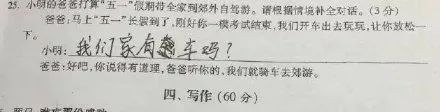 25. 小明的爸爸打算“五一”假期带全家到郊外自驾游。请根据情境补全对话。(3分)
爸爸:马上“五一”长假到了,刚好你一模考试结束,我们开车出去玩玩,让你放松一
下。
小明:我们家有车吗?
爸爸:好吧,你说得有道理,爸爸听你的,我们就骑车去郊游。
四、写作(60分)